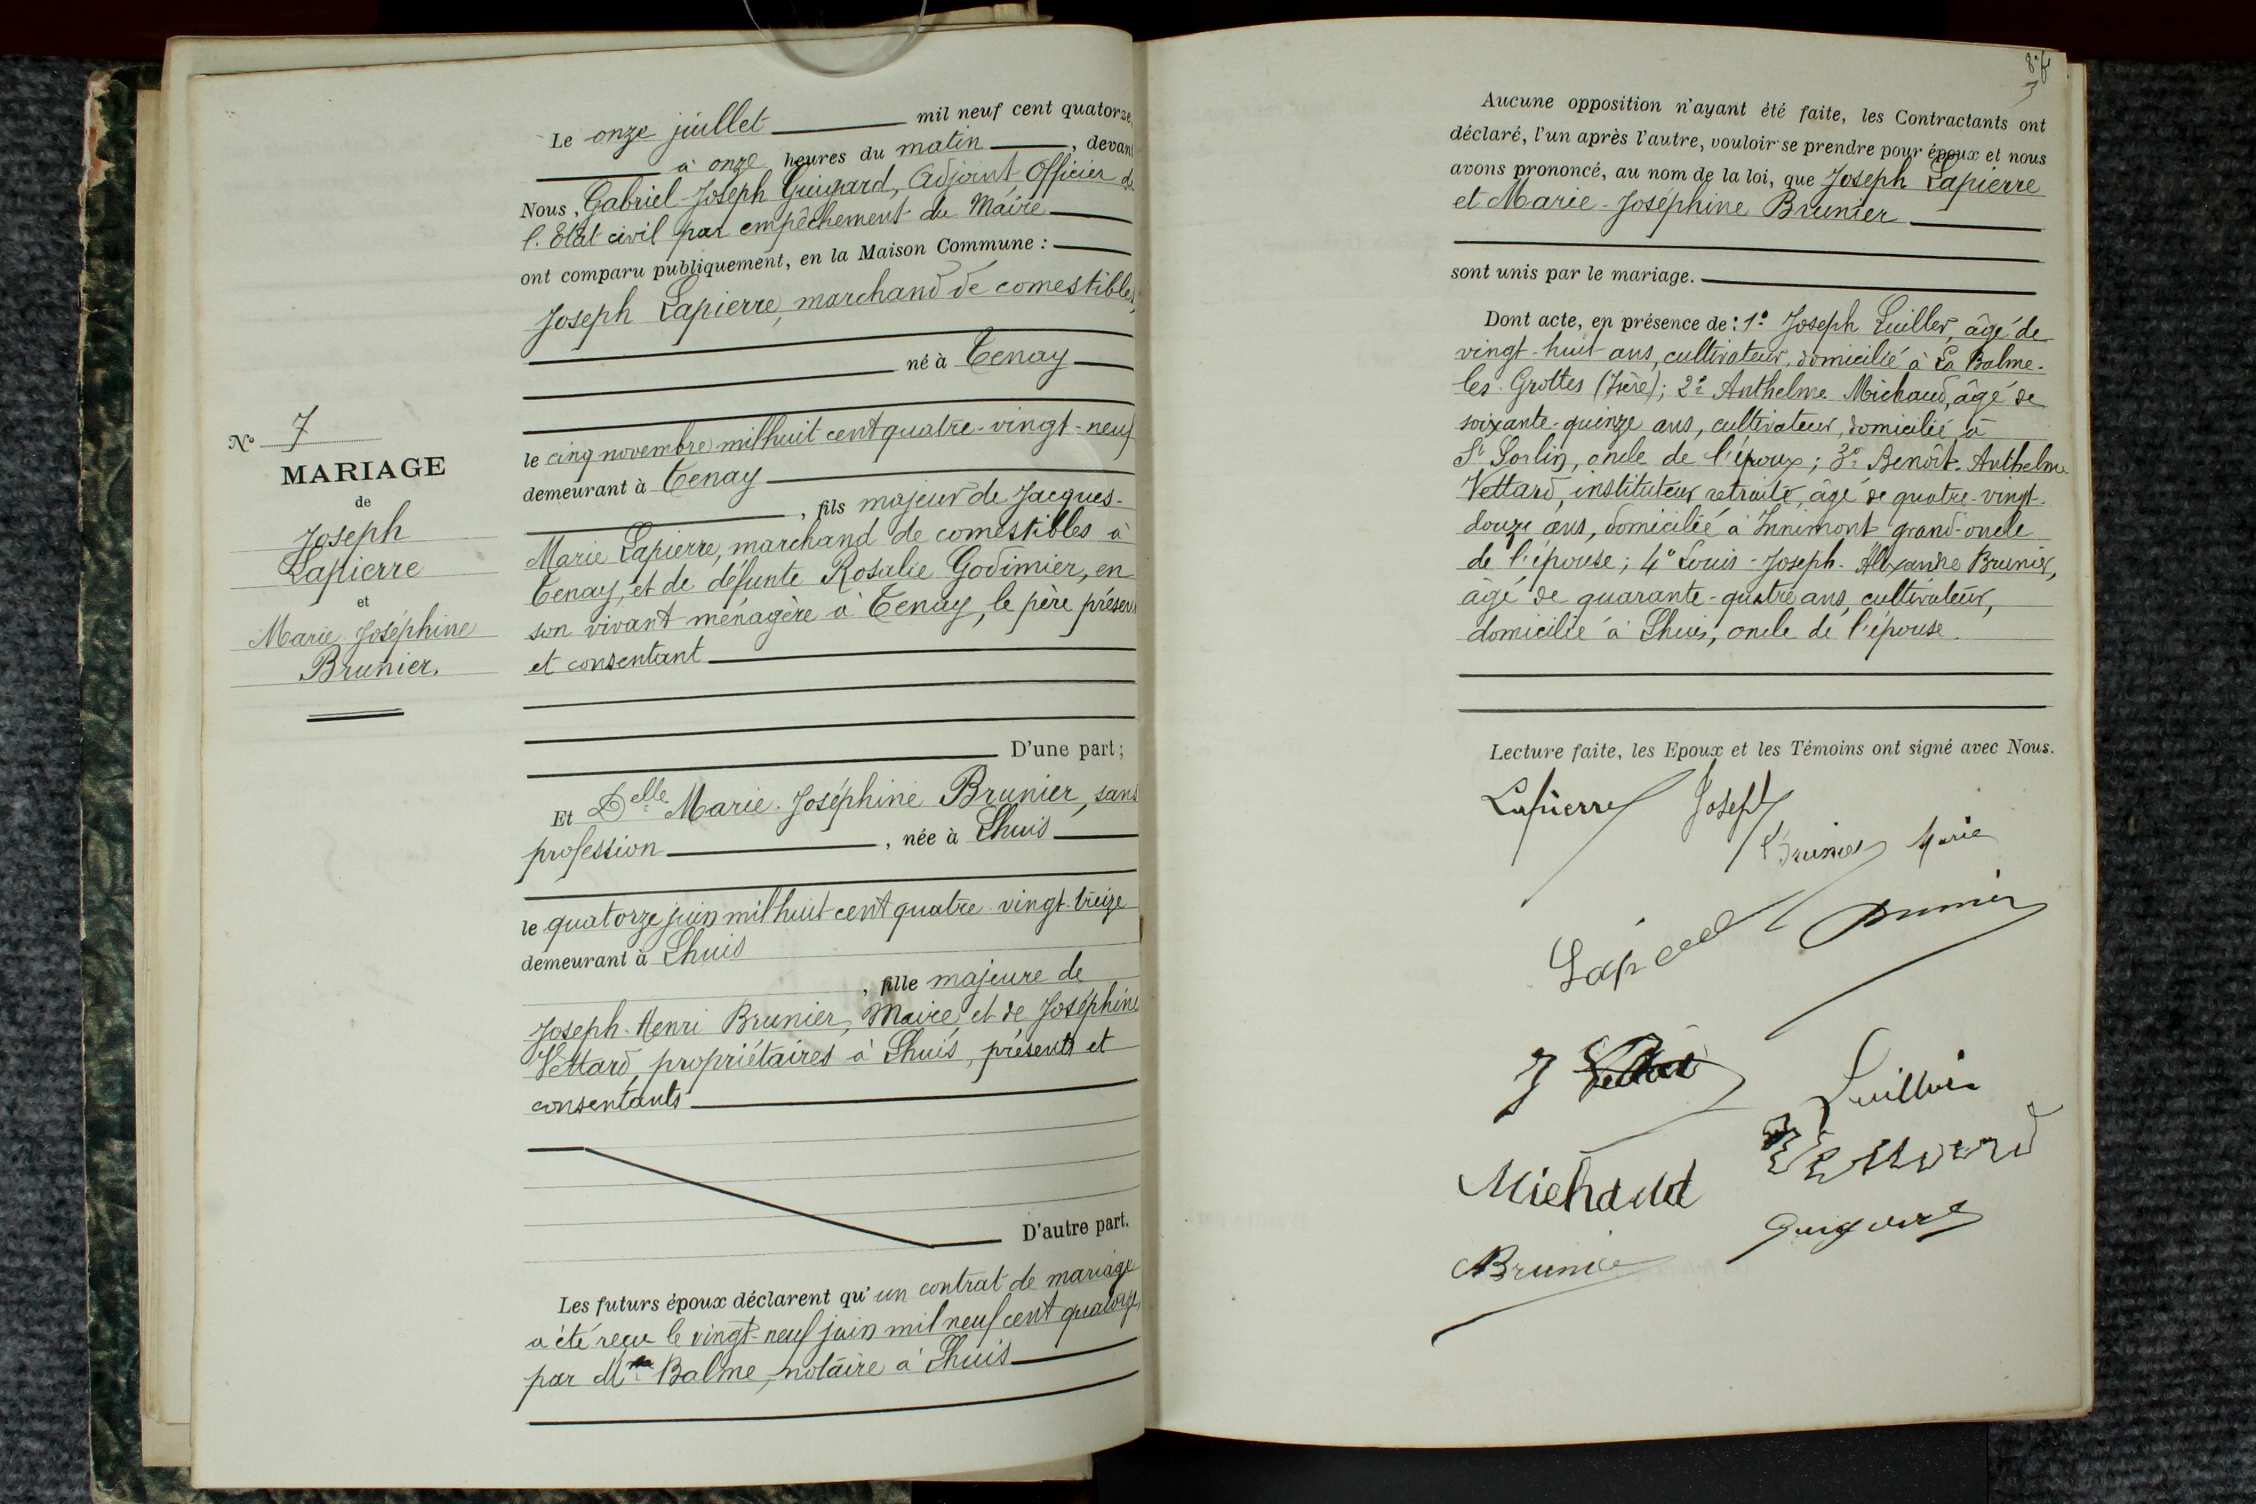 Le onze juillet mil neuf cent quatorze,
à onze heures du matin, devant
Nous, Gabriel-Joseph Guigard, Adjoint Officier de
l'Etat civil par empêchement du Maire
ont comparu publiquement, en la Maison Commune :
Joseph Lapierre, marchand de comestibles,
né à Tenay
le cinq novembre mil huit cent quatre-vingt-neuf
demeurant à Tenay
, fils majeur de Jacques-
Marie Lapierre, marchand de comestibles à
Tenay, et de défunte Rosalie Godimier, en
son vivant ménagère à Tenay, le père présent
et consentant
D'une part ;
N° 7
MARIAGE
de
Joseph
Lapierre
et
Marie-Joséphine
Brunier.
Et Delle Marie-Joséphine Brunier, sans
profession, née à Lhuis
le quatorze juin mil huit cent quatre-vingt-treize
demeurant à Lhuis
, fille majeure de
Joseph-Henri Brunier, Maire, et de Joséphine
Vettard, propriétaires à Lhuis, présents et
consentants
D'autre part.
Les futurs époux déclarent qu'un contrat de mariage
a été reçu le vingt-neuf juin mil neuf cent quatorze,
par Me Balme, notaire à Lhuis
Aucune opposition n'ayant été faite, les Contractants ont
déclaré, l'un après l'autre, vouloir se prendre pour époux et nous
avons prononcé, au nom de la loi, que Joseph Lapierre
et Marie-Joséphine Brunier
sont unis par le mariage.
Dont acte, en présence de : 1° Joseph Luiller, âgé de
vingt-huit ans, cultivateur, domicilié à La Balme-
les-Grottes (Isère) ; 2° Anthelme Michaud, âgé de
soixante-quinze ans, cultivateur, domicilié à
St Sorlin, oncle de l'époux ; 3° Benoît-Anthelme
Vettard, instituteur retraité, âgé de quatre-vingt-
douze ans, domicilié à Innimont grand-oncle
de l'épouse ; 4° Louis-Joseph-Alexandre Brunier,
âgé de quarante-quatre ans, cultivateur,
domicilié à Lhuis, oncle de l'épouse.
Lecture faite, les Epoux et les Témoins ont signé avec Nous.
Lapierre Joseph
Brunier Marie
Lapierre Brunier
J Vettard
Luiller
Michaud Vettard
Brunier Guigard